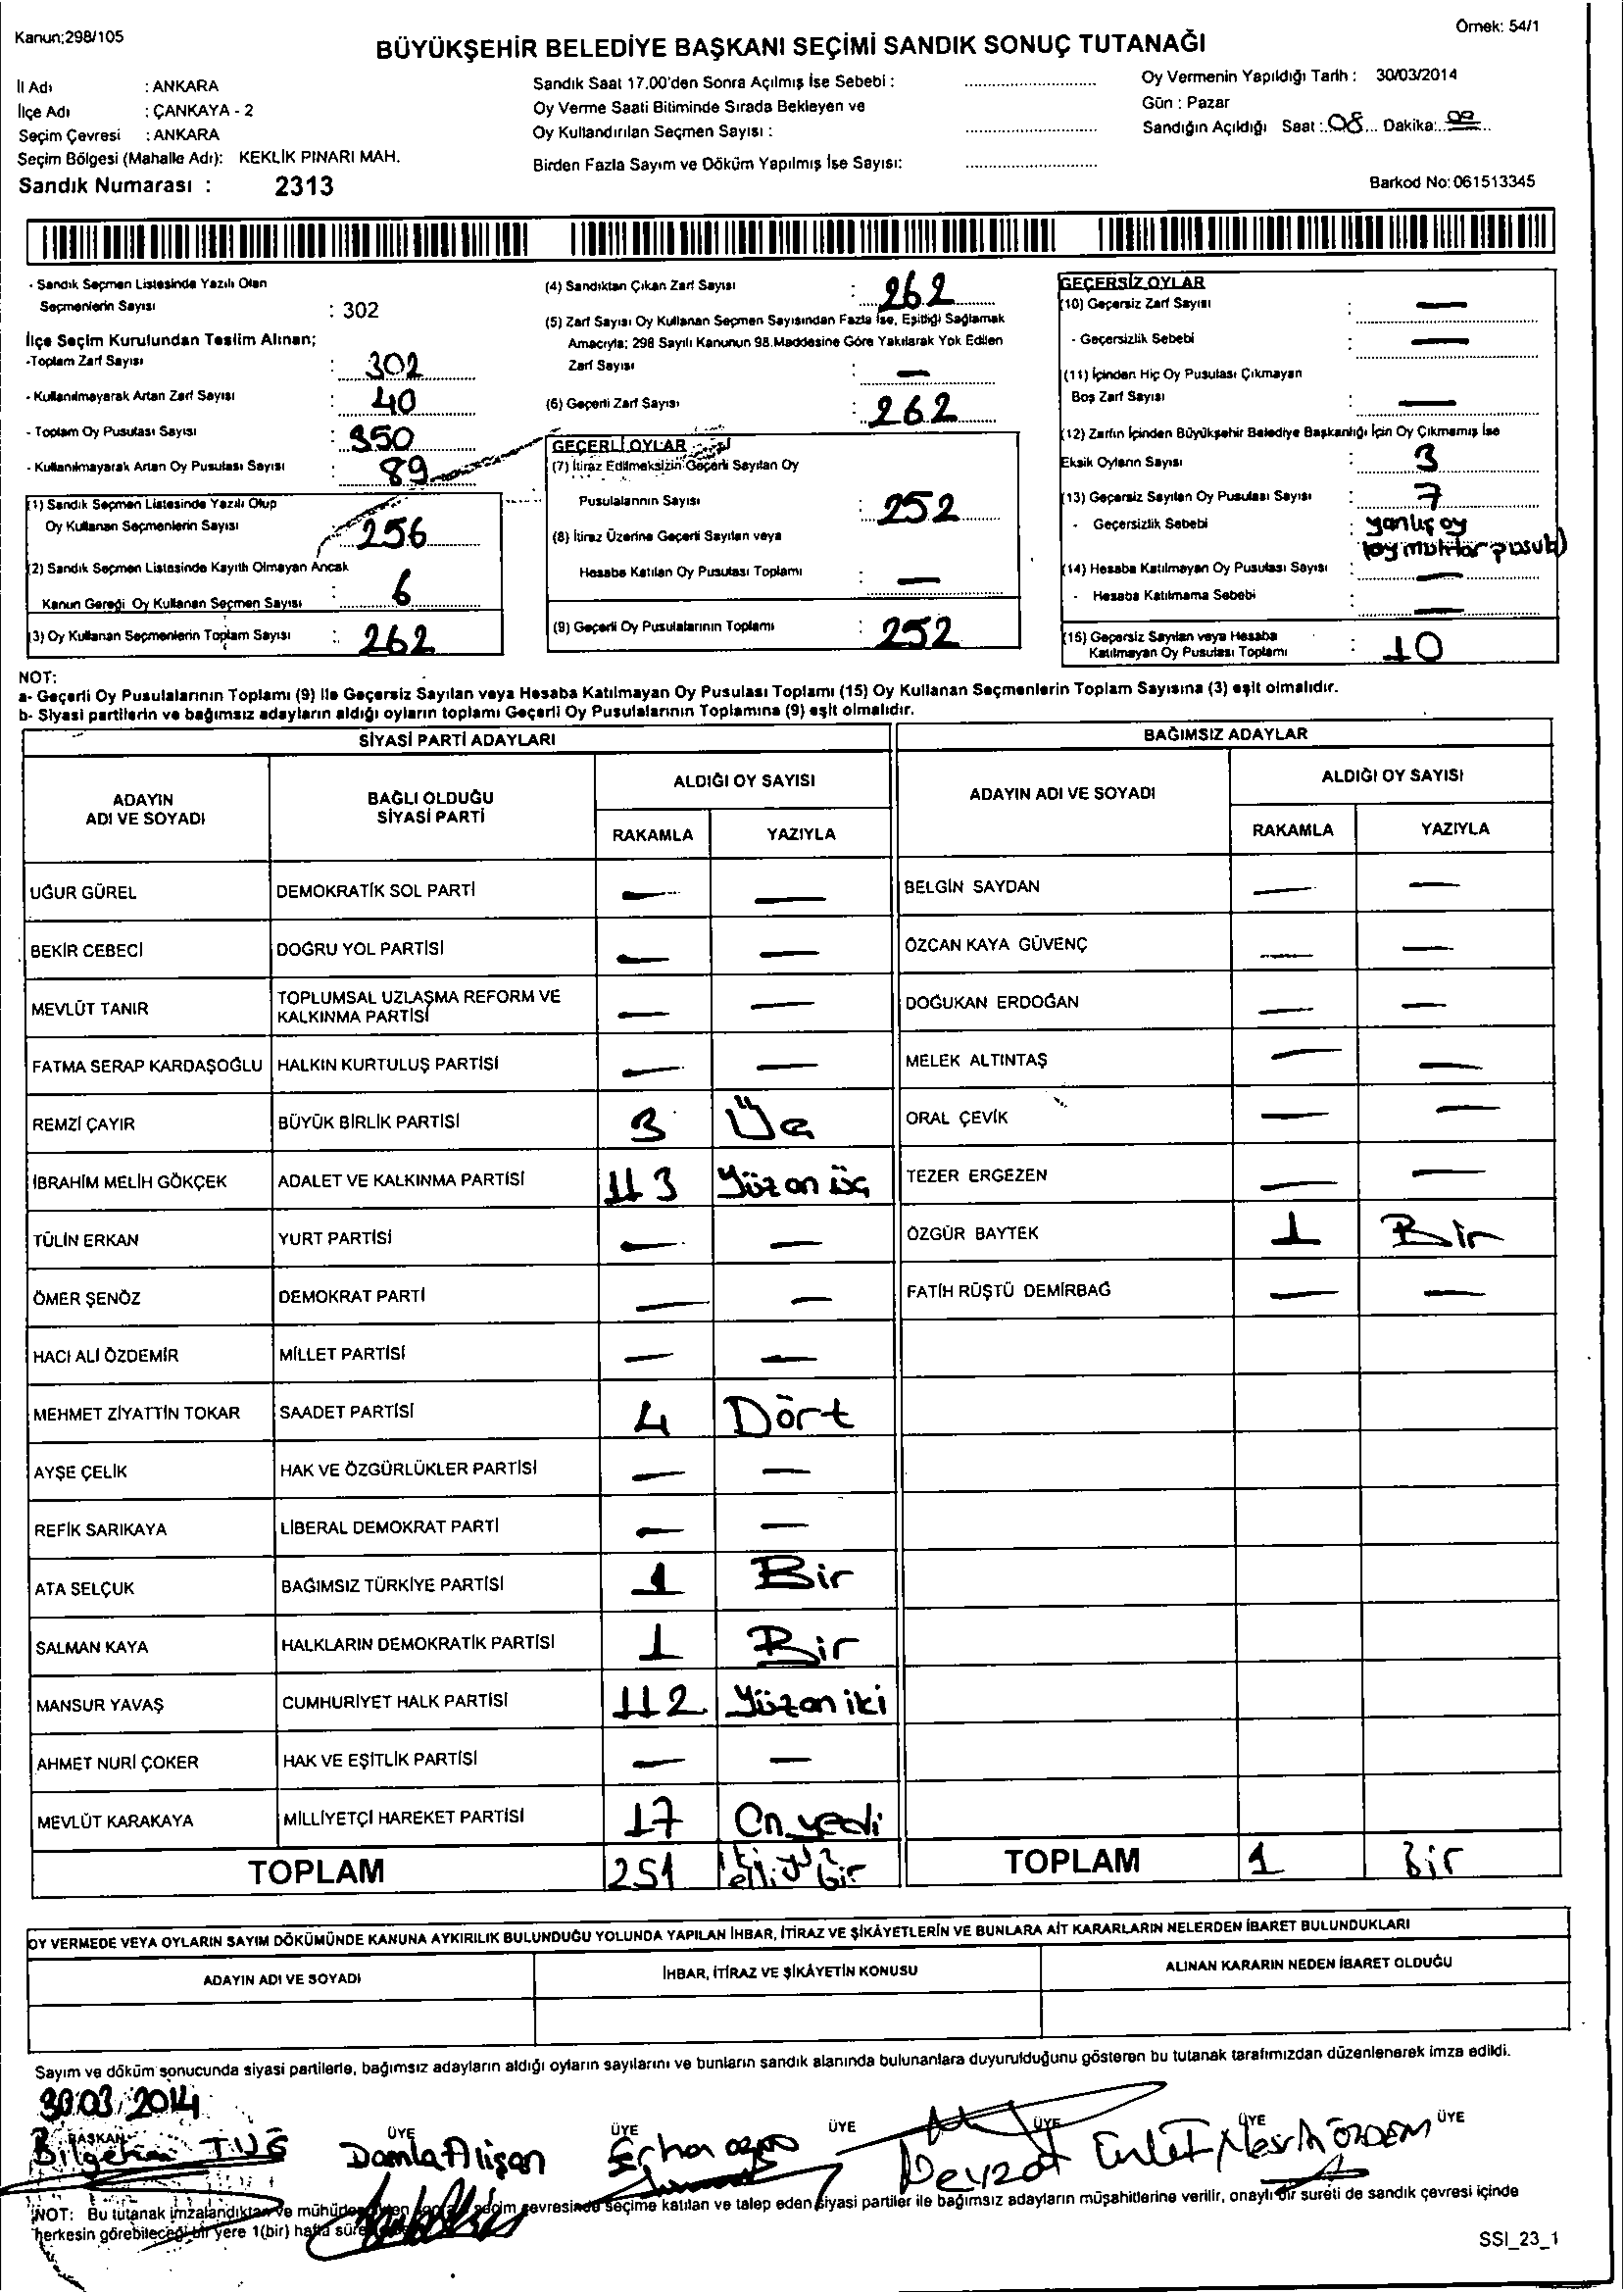 Kanun:298/105
Örnek: 54/1
BÜYÜKŞEHİR BELEDİYE BAŞKANI SEÇİMİ SANDIK SONUÇ TUTANAĞI
İl Adı : ANKARA
İlçe Adı : ÇANKAYA - 2
Seçim Çevresi : ANKARA
Seçim Bölgesi (Mahalle Adı): KEKLİK PINARI MAH.
Sandık Numarası : 2313
Sandık Saat 17.00'den Sonra Açılmış İse Sebebi :
Oy Verme Saati Bitiminde Sırada Bekleyen ve
Oy Kullandırılan Seçmen Sayısı :
Birden Fazla Sayım ve Döküm Yapılmış İse Sayısı:
Oy Vermenin Yapıldığı Tarih : 30/03/2014
Gün : Pazar
Sandığın Açıldığı Saat : 08 Dakika: 00
Barkod No: 061513345
- Sandık Seçmen Listesinde Yazılı Olan
Seçmenlerin Sayısı : 302
İlçe Seçim Kurulundan Teslim Alınan;
-Toplam Zarf Sayısı : 302
- Kullanılmayarak Artan Zarf Sayısı : 40
- Toplam Oy Pusulası Sayısı : 350
- Kullanılmayarak Artan Oy Pusulası Sayısı : 89
(1) Sandık Seçmen Listesinde Yazılı Olup
Oy Kullanan Seçmenlerin Sayısı : 256
(2) Sandık Seçmen Listesinde Kayıtlı Olmayan Ancak
Kanun Gereği Oy Kullanan Seçmen Sayısı : 6
(3) Oy Kullanan Seçmenlerin Toplam Sayısı : 262
(4) Sandıktan Çıkan Zarf Sayısı : 262
(5) Zarf Sayısı Oy Kullanan Seçmen Sayısından Fazla İse, Eşitliği Sağlamak
Amacıyla; 298 Sayılı Kanunun 98.Maddesine Göre Yakılarak Yok Edilen
Zarf Sayısı : —
(6) Geçerli Zarf Sayısı : 262
GEÇERLİ OYLAR
(7) İtiraz Edilmeksizin Geçerli Sayılan Oy
Pusulalarının Sayısı : 252
(8) İtiraz Üzerine Geçerli Sayılan veya
Hesaba Katılan Oy Pusulası Toplamı : —
(9) Geçerli Oy Pusulalarının Toplamı : 252
GEÇERSİZ OYLAR
(10) Geçersiz Zarf Sayısı : —
- Geçersizlik Sebebi : —
(11) İçinden Hiç Oy Pusulası Çıkmayan
Boş Zarf Sayısı : —
(12) Zarfın İçinden Büyükşehir Belediye Başkanlığı İçin Oy Çıkmamış İse
Eksik Oyların Sayısı : 3
(13) Geçersiz Sayılan Oy Pusulası Sayısı : 7
- Geçersizlik Sebebi : yanlış oy
(14) Hesaba Katılmayan Oy Pusulası Sayısı : —
- Hesaba Katılmama Sebebi : —
(15) Geçersiz Sayılan veya Hesaba
Katılmayan Oy Pusulası Toplamı : 10
NOT:
a- Geçerli Oy Pusulalarının Toplamı (9) ile Geçersiz Sayılan veya Hesaba Katılmayan Oy Pusulası Toplamı (15) Oy Kullanan Seçmenlerin Toplam Sayısına (3) eşit olmalıdır.
b- Siyasi partilerin ve bağımsız adayların aldığı oyların toplamı Geçerli Oy Pusulalarının Toplamına (9) eşit olmalıdır.
SİYASİ PARTİ ADAYLARI
ADAYIN ADI VE SOYADI
BAĞLI OLDUĞU SİYASİ PARTİ
ALDIĞI OY SAYISI
RAKAMLA YAZIYLA
UĞUR GÜREL DEMOKRATİK SOL PARTİ — —
BEKİR CEBECİ DOĞRU YOL PARTİSİ — —
MEVLÜT TANIR TOPLUMSAL UZLAŞMA REFORM VE KALKINMA PARTİSİ — —
FATMA SERAP KARDAŞOĞLU HALKIN KURTULUŞ PARTİSİ — —
REMZİ ÇAYIR BÜYÜK BİRLİK PARTİSİ 3 Üç
İBRAHİM MELİH GÖKÇEK ADALET VE KALKINMA PARTİSİ 113 Yüzon üç
TÜLİN ERKAN YURT PARTİSİ — —
ÖMER ŞENÖZ DEMOKRAT PARTİ — —
HACI ALİ ÖZDEMİR MİLLET PARTİSİ — —
MEHMET ZİYATTİN TOKAR SAADET PARTİSİ 4 Dört
AYŞE ÇELİK HAK VE ÖZGÜRLÜKLER PARTİSİ — —
REFİK SARIKAYA LİBERAL DEMOKRAT PARTİ — —
ATA SELÇUK BAĞIMSIZ TÜRKİYE PARTİSİ 1 Bir
SALMAN KAYA HALKLARIN DEMOKRATİK PARTİSİ 1 Bir
MANSUR YAVAŞ CUMHURİYET HALK PARTİSİ 112 Yüzon iki
AHMET NURİ ÇOKER HAK VE EŞİTLİK PARTİSİ — —
MEVLÜT KARAKAYA MİLLİYETÇİ HAREKET PARTİSİ 17 On yedi
TOPLAM 251 iki yüz elli bir
BAĞIMSIZ ADAYLAR
ADAYIN ADI VE SOYADI
ALDIĞI OY SAYISI
RAKAMLA YAZIYLA
BELGİN SAYDAN — —
ÖZCAN KAYA GÜVENÇ — —
DOĞUKAN ERDOĞAN — —
MELEK ALTINTAŞ — —
ORAL ÇEVİK — —
TEZER ERGEZEN — —
ÖZGÜR BAYTEK 1 Bir
FATİH RÜŞTÜ DEMİRBAĞ — —
TOPLAM 1 Bir
OY VERMEDE VEYA OYLARIN SAYIM DÖKÜMÜNDE KANUNA AYKIRILIK BULUNDUĞU YOLUNDA YAPILAN İHBAR, İTİRAZ VE ŞİKÂYETLERİN VE BUNLARA AİT KARARLARIN NELERDEN İBARET BULUNDUKLARI
ADAYIN ADI VE SOYADI
İHBAR, İTİRAZ VE ŞİKÂYETİN KONUSU
ALINAN KARARIN NEDEN İBARET OLDUĞU
Sayım ve döküm sonucunda siyasi partilerle, bağımsız adayların aldığı oyların sayılarını ve bunların sandık alanında bulunanlara duyurulduğunu gösteren bu tutanak tarafımızdan düzenlenerek imza edildi.
30.03.2014
BAŞKAN ÜYE ÜYE ÜYE ÜYE ÜYE ÜYE
Damla Alişan
NOT: Bu tutanak imzalandıktan ve seçim çevresinde seçime katılan ve talep eden siyasi partiler ile bağımsız adayların müşahitlerine verilir, onaylı bir sureti de sandık çevresi içinde
herkesin görebileceği bir yere 1(bir) hafta
SSI_23_1